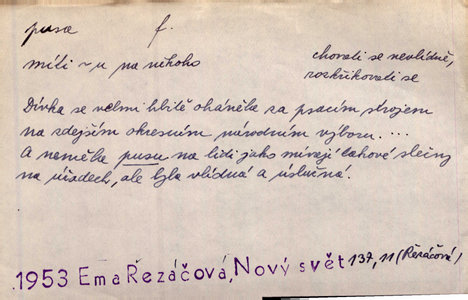 pusa f.
míti ~u na někoho
chovati se nevlídně,
rozkřikovati se
Dívka se velmi hbitě oháněla za psacím strojem
na zdejším okresním národním výboru. ...
A neměla pusu na lidi jako mívají takové slečny
na úřadech, ale byla vlídná a úslužná.
1953 Ema Řezáčová, Nový svět 137, 11 (Řezáčová)